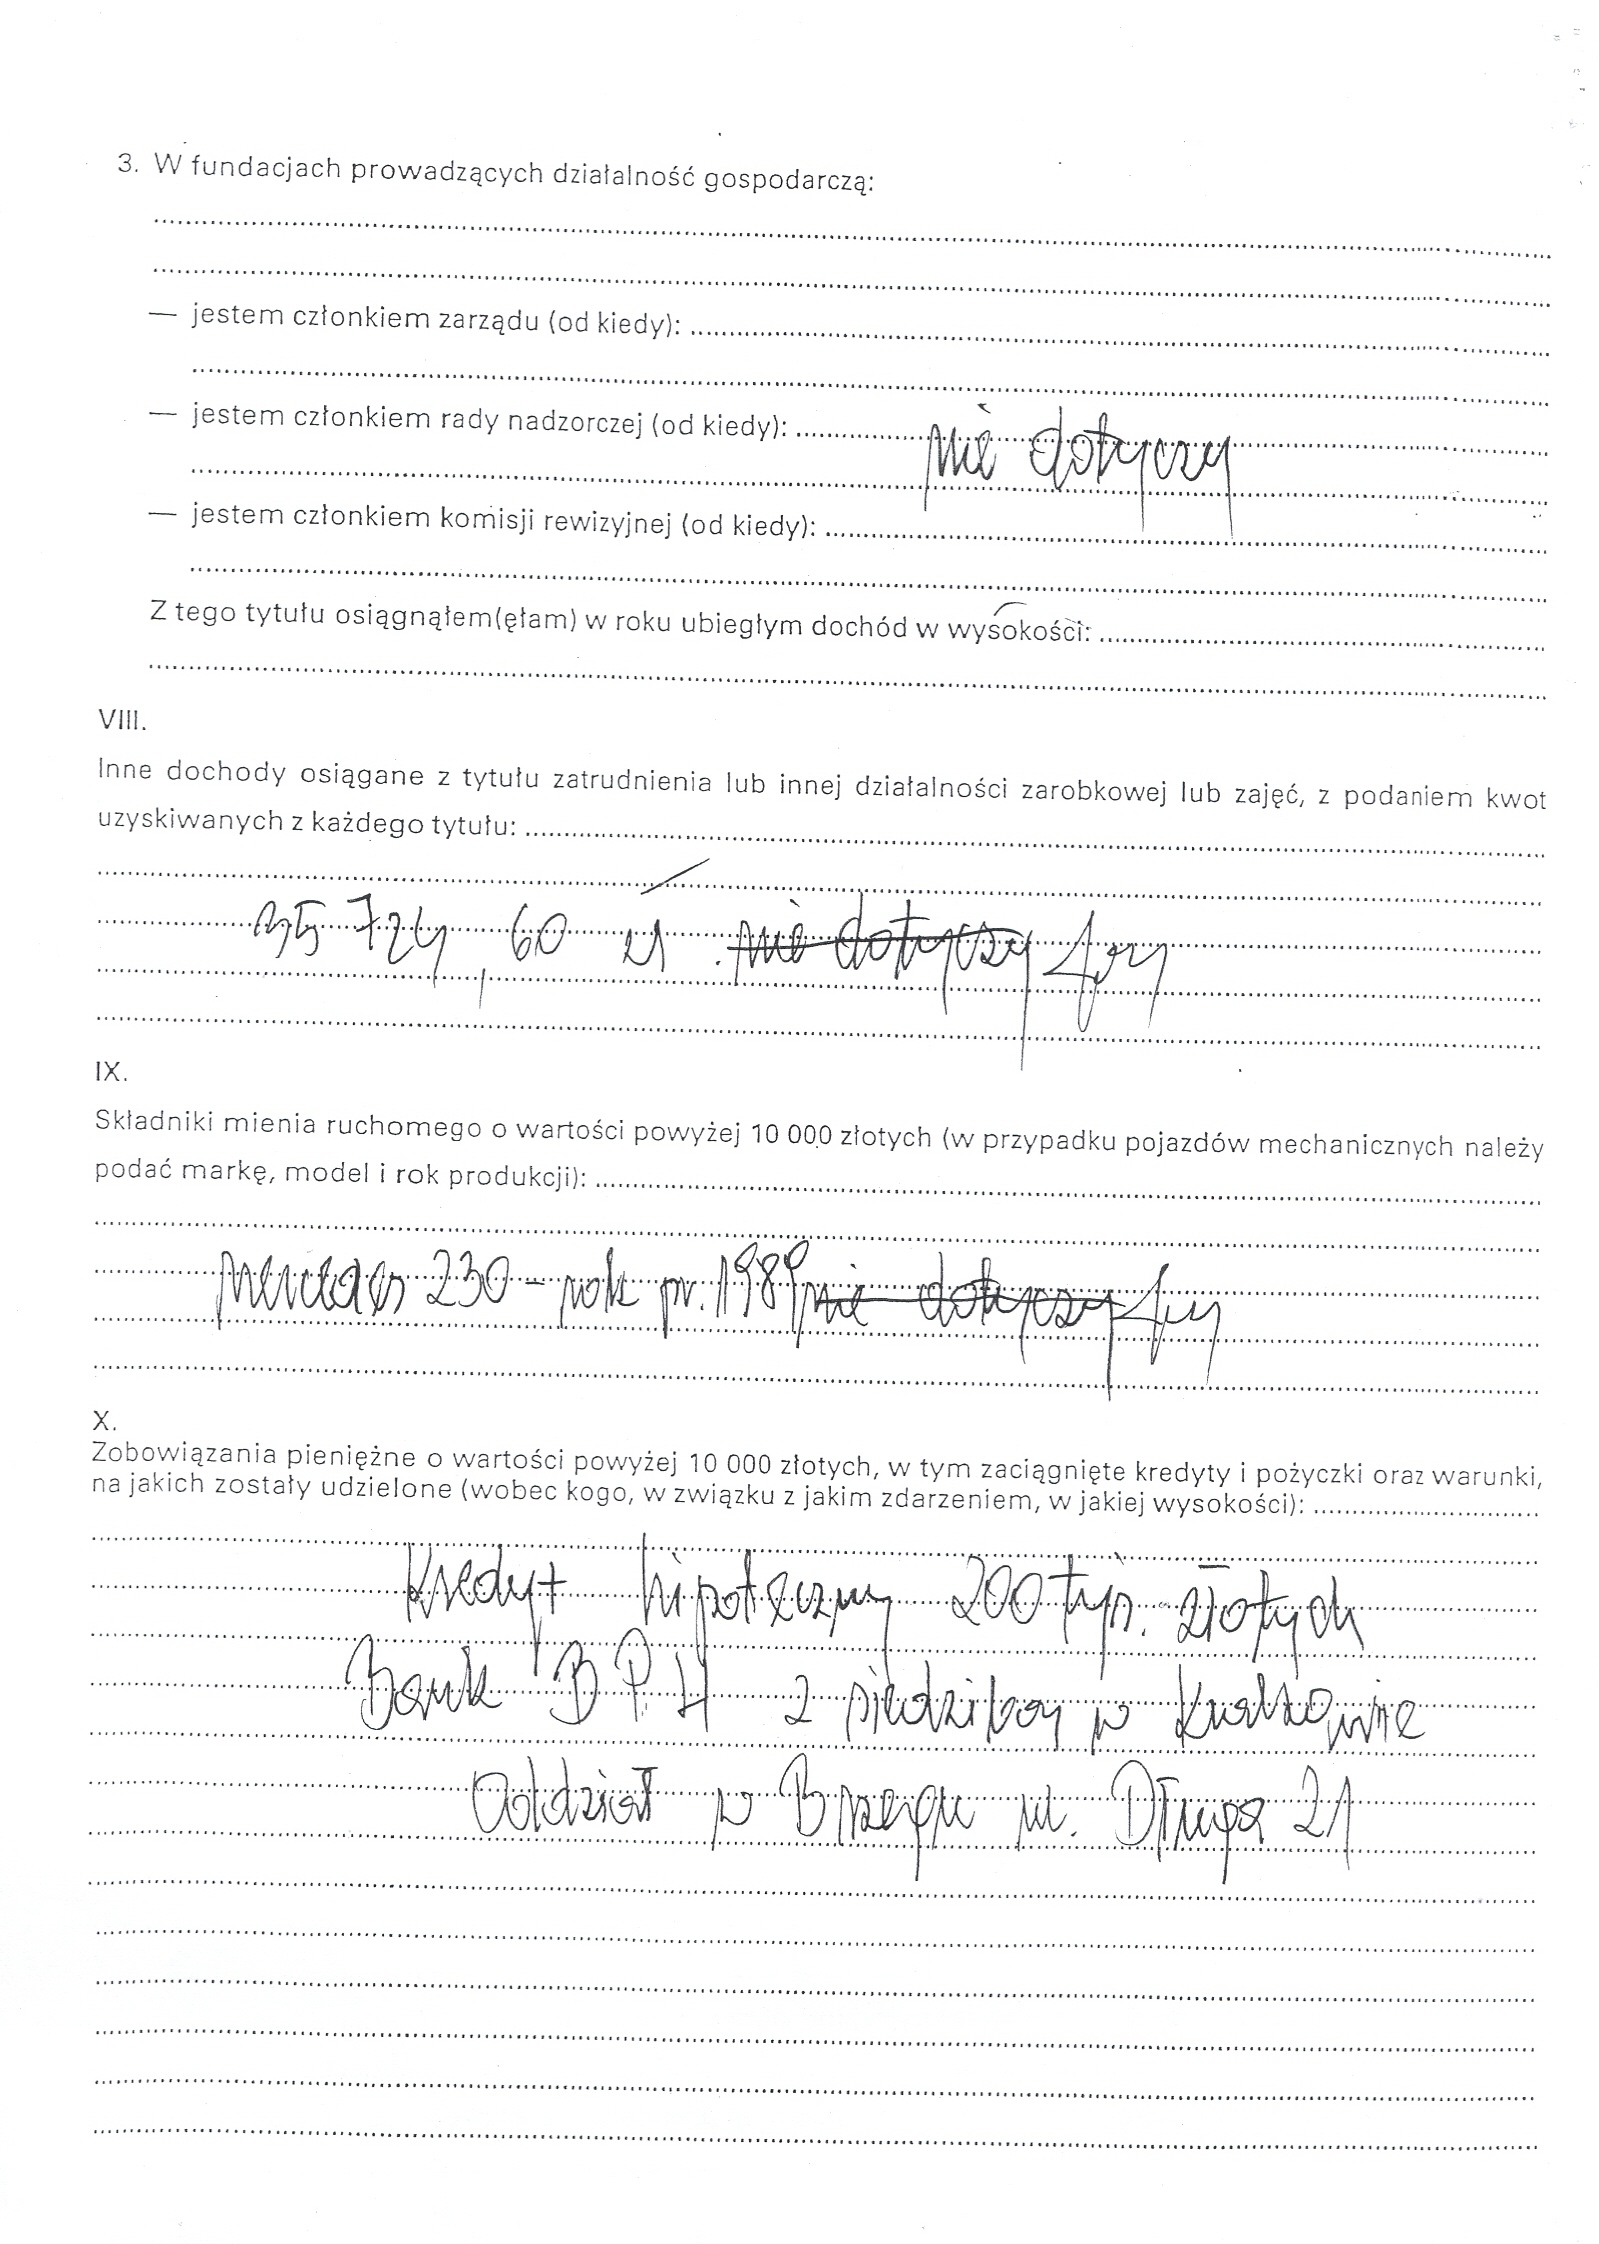 3. W fundacjach prowadzących działalność gospodarczą:
— jestem członkiem zarządu (od kiedy):
— jestem członkiem rady nadzorczej (od kiedy):
nie dotyczy
— jestem członkiem komisji rewizyjnej (od kiedy):
Z tego tytułu osiągnąłem(ęłam) w roku ubiegłym dochód w wysokości:
VIII.
Inne dochody osiągane z tytułu zatrudnienia lub innej działalności zarobkowej lub zajęć, z podaniem kwot
uzyskiwanych z każdego tytułu:
724,60 zł nie dotyczy
IX.
Składniki mienia ruchomego o wartości powyżej 10 000 złotych (w przypadku pojazdów mechanicznych należy
podać markę, model i rok produkcji):
Mercedes 230 - rok pr. 1989 nie dotyczy
X.
Zobowiązania pieniężne o wartości powyżej 10 000 złotych, w tym zaciągnięte kredyty i pożyczki oraz warunki,
na jakich zostały udzielone (wobec kogo, w związku z jakim zdarzeniem, w jakiej wysokości):
Kredyt hipoteczny 200 tyś. złotych
Bank BPH z siedzibą w Krakowie
Oddział w Brzegu ul. Długa 21